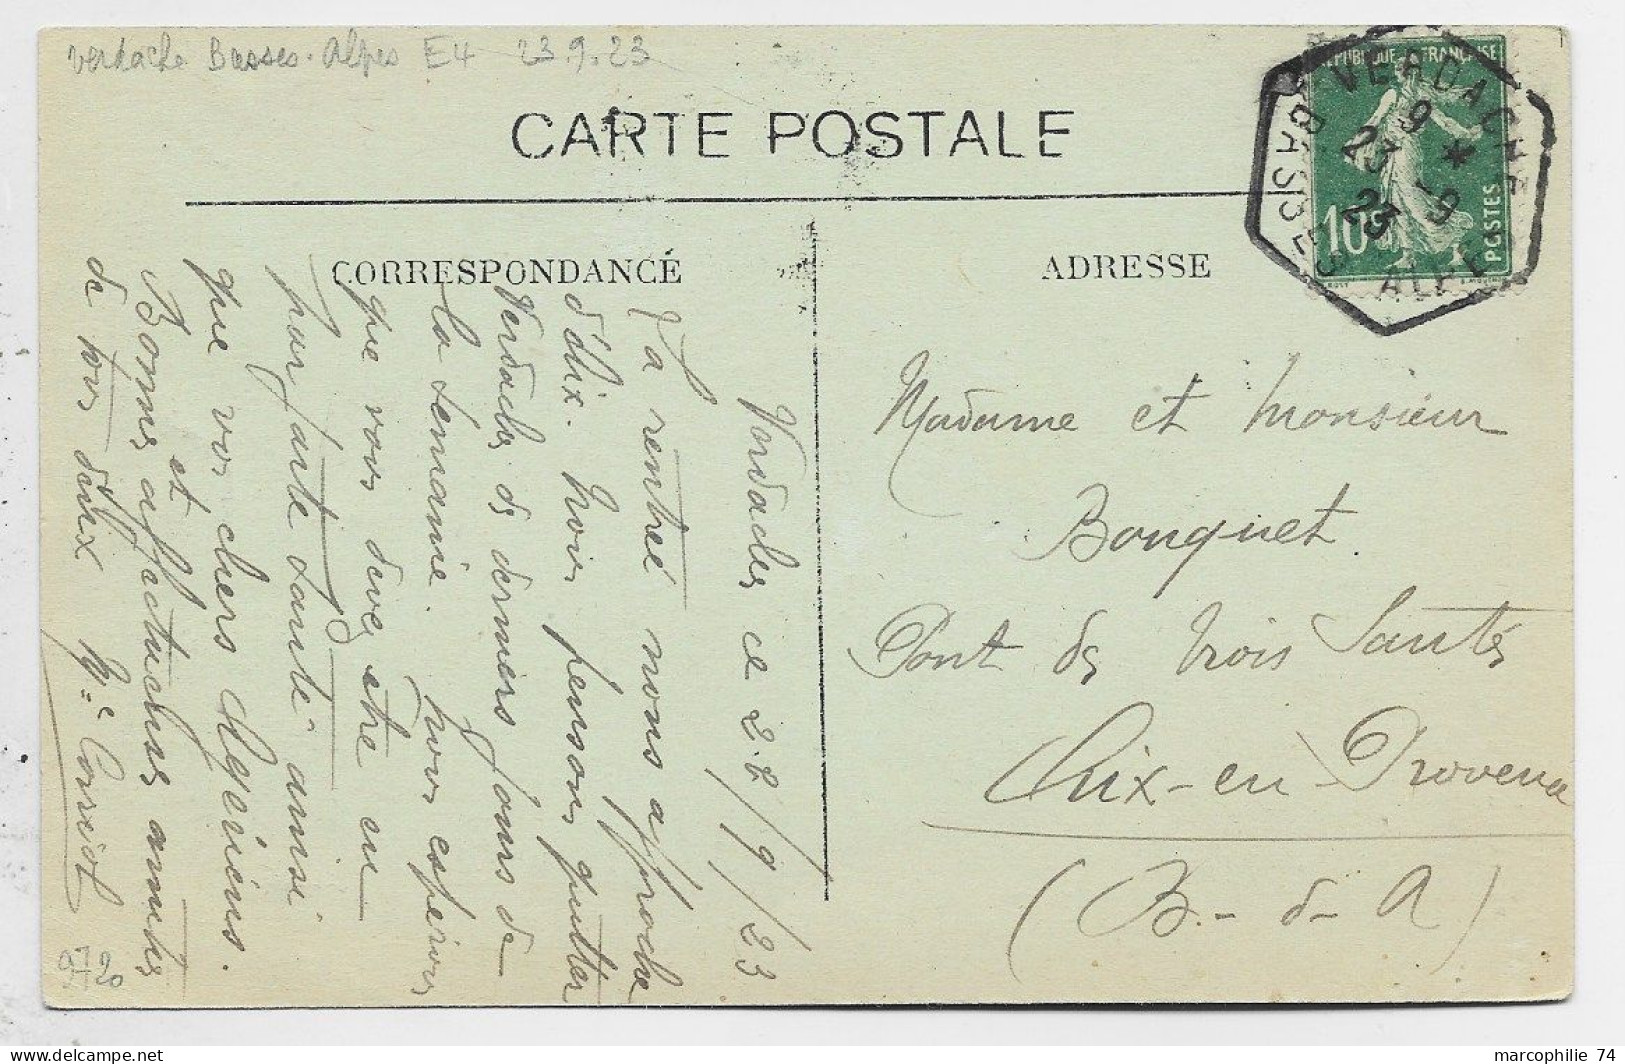 Verdache Basses-Alpes E4 23.9.23
CARTE POSTALE
CORRESPONDANCE
ADRESSE
REPUBLIQUE FRANÇAISE
10c
POSTES
VERDACHE
BASSES ALPES
9 *
23 -9
23
Verdaches ce 22/9/23
La rentrée nous approche
d'Aix. Nous pensons quitter
Verdaches les derniers jours de
la semaine. Nous espérons
que vous devez être en
parfaite santé ainsi
que vos chers Algériens.
Bonnes et affectueuses amitiés
de tous deux
Madame et Monsieur
Bouquet.
Pont des trois Sautés
Aix-en-Provence
(B.-d-A)
9720
marcophilie 74